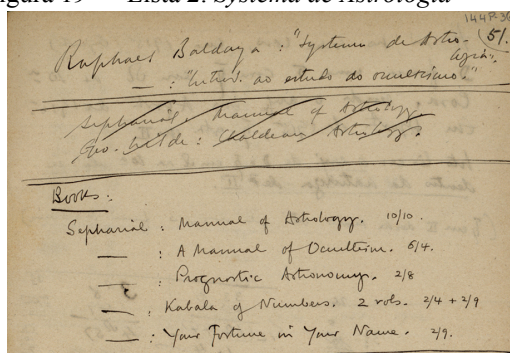 Figura 19 — Lista 2: Systema de Astrologia
144P-36
(51.
Raphael Baldaya: "Systema de Astro-
logia".
— : "Introd. ao estudo do occultismo."
Sepharial: Manual of Astrology.
Geo. Wilde: Chaldean Astrology.
Books:
Sepharial: Manual of Astrology. 10/10.
— : A Manual of Occultism. 6/4.
— : Prognostic Astronomy. 2/8
— : Kabala of Numbers. 2 vols. 2/4 + 2/9
— : Your Fortune in Your Name. 2/9.